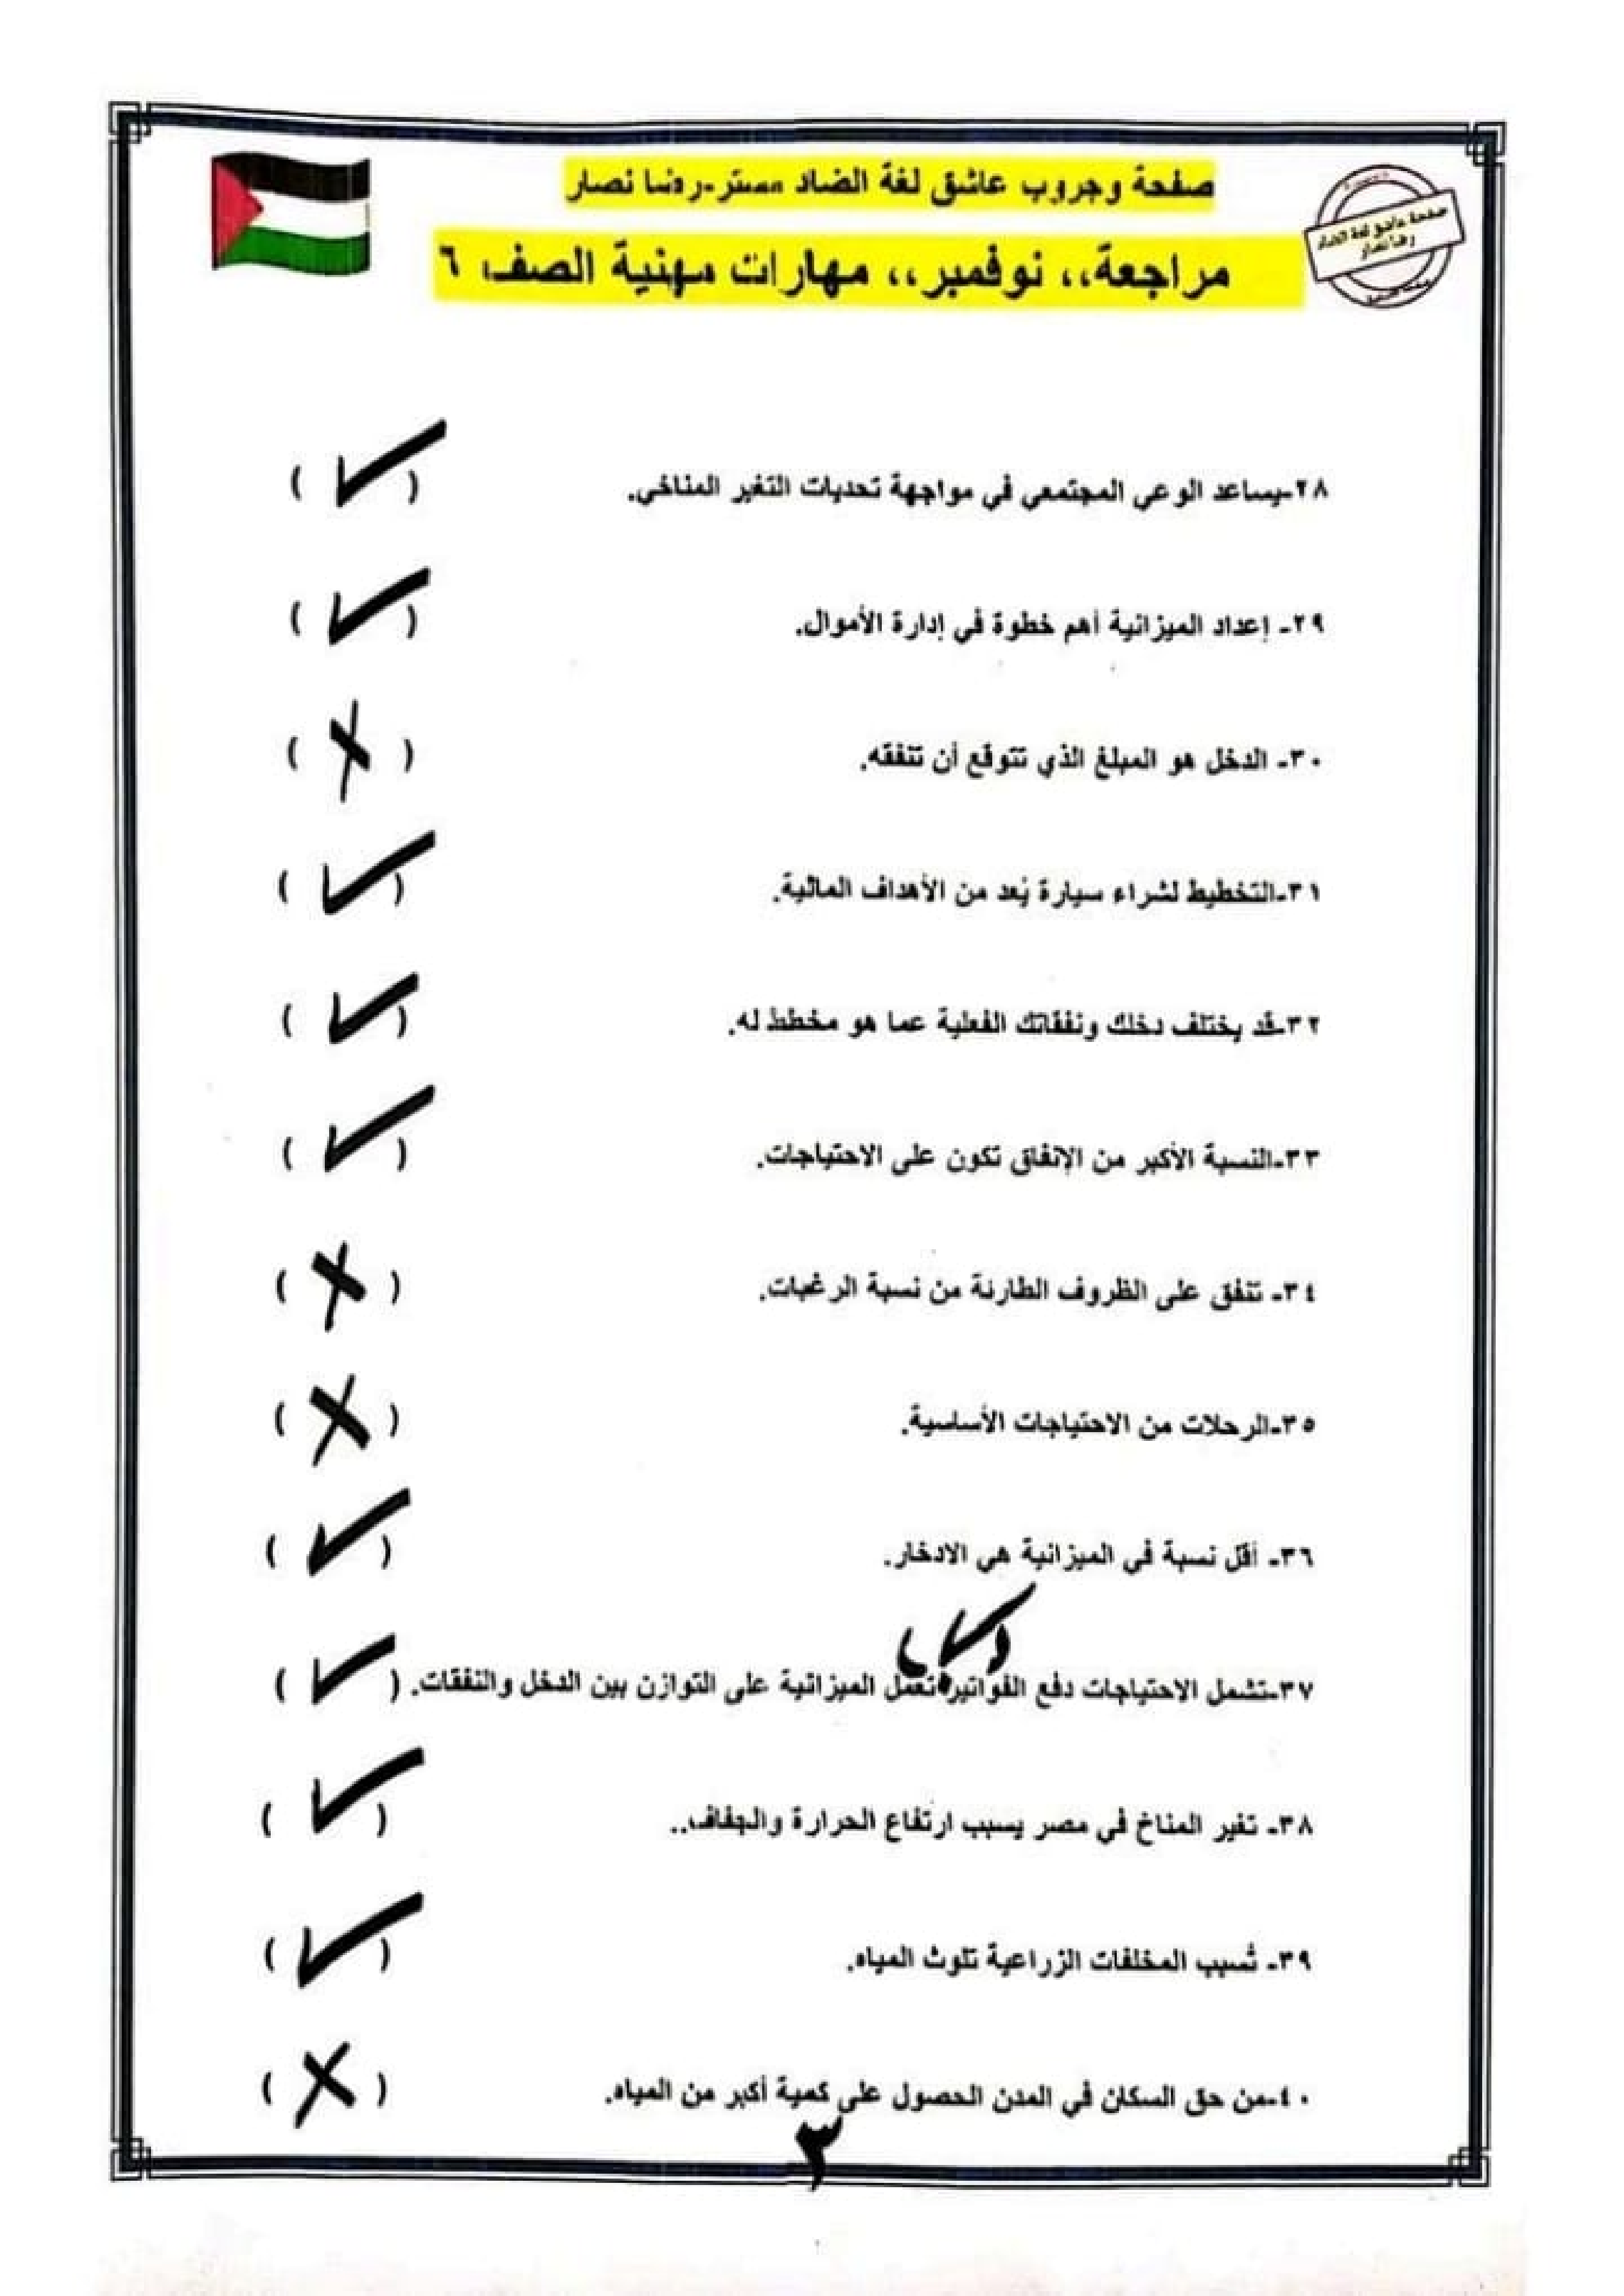 صفحة وجروب عاشق لغة الضاد مستر-رضا نصار
مراجعة،، نوفمبر،، مهارات مهنية الصف ٦
صفحة عاشق لغة الضاد
رضا نصار
٢٨-يساعد الوعي المجتمعي في مواجهة تحديات التغير المناخي. ( ✓ )
٢٩- إعداد الميزانية أهم خطوة في إدارة الأموال. ( ✓ )
٣٠- الدخل هو المبلغ الذي تتوقع أن تنفقه. ( X )
٣١-التخطيط لشراء سيارة يُعد من الأهداف المالية. ( ✓ )
٣٢-قد يختلف دخلك ونفقاتك الفعلية عما هو مخطط له. ( ✓ )
٣٣-النسبة الأكبر من الإنفاق تكون على الاحتياجات. ( ✓ )
٣٤- تنفق على الظروف الطارئة من نسبة الرغبات. ( X )
٣٥-الرحلات من الاحتياجات الأساسية. ( X )
٣٦- أقل نسبة في الميزانية هي الادخار. ( ✓ )
٣٧-تشمل الاحتياجات دفع الفواتير ( ✓ ) تعمل الميزانية على التوازن بين الدخل والنفقات. ( ✓ )
٣٨- تغير المناخ في مصر يسبب ارتفاع الحرارة والجفاف.. ( ✓ )
٣٩- تُسبب المخلفات الزراعية تلوث المياه. ( ✓ )
٤٠-من حق السكان في المدن الحصول على كمية أكبر من المياه. ( X )
٣